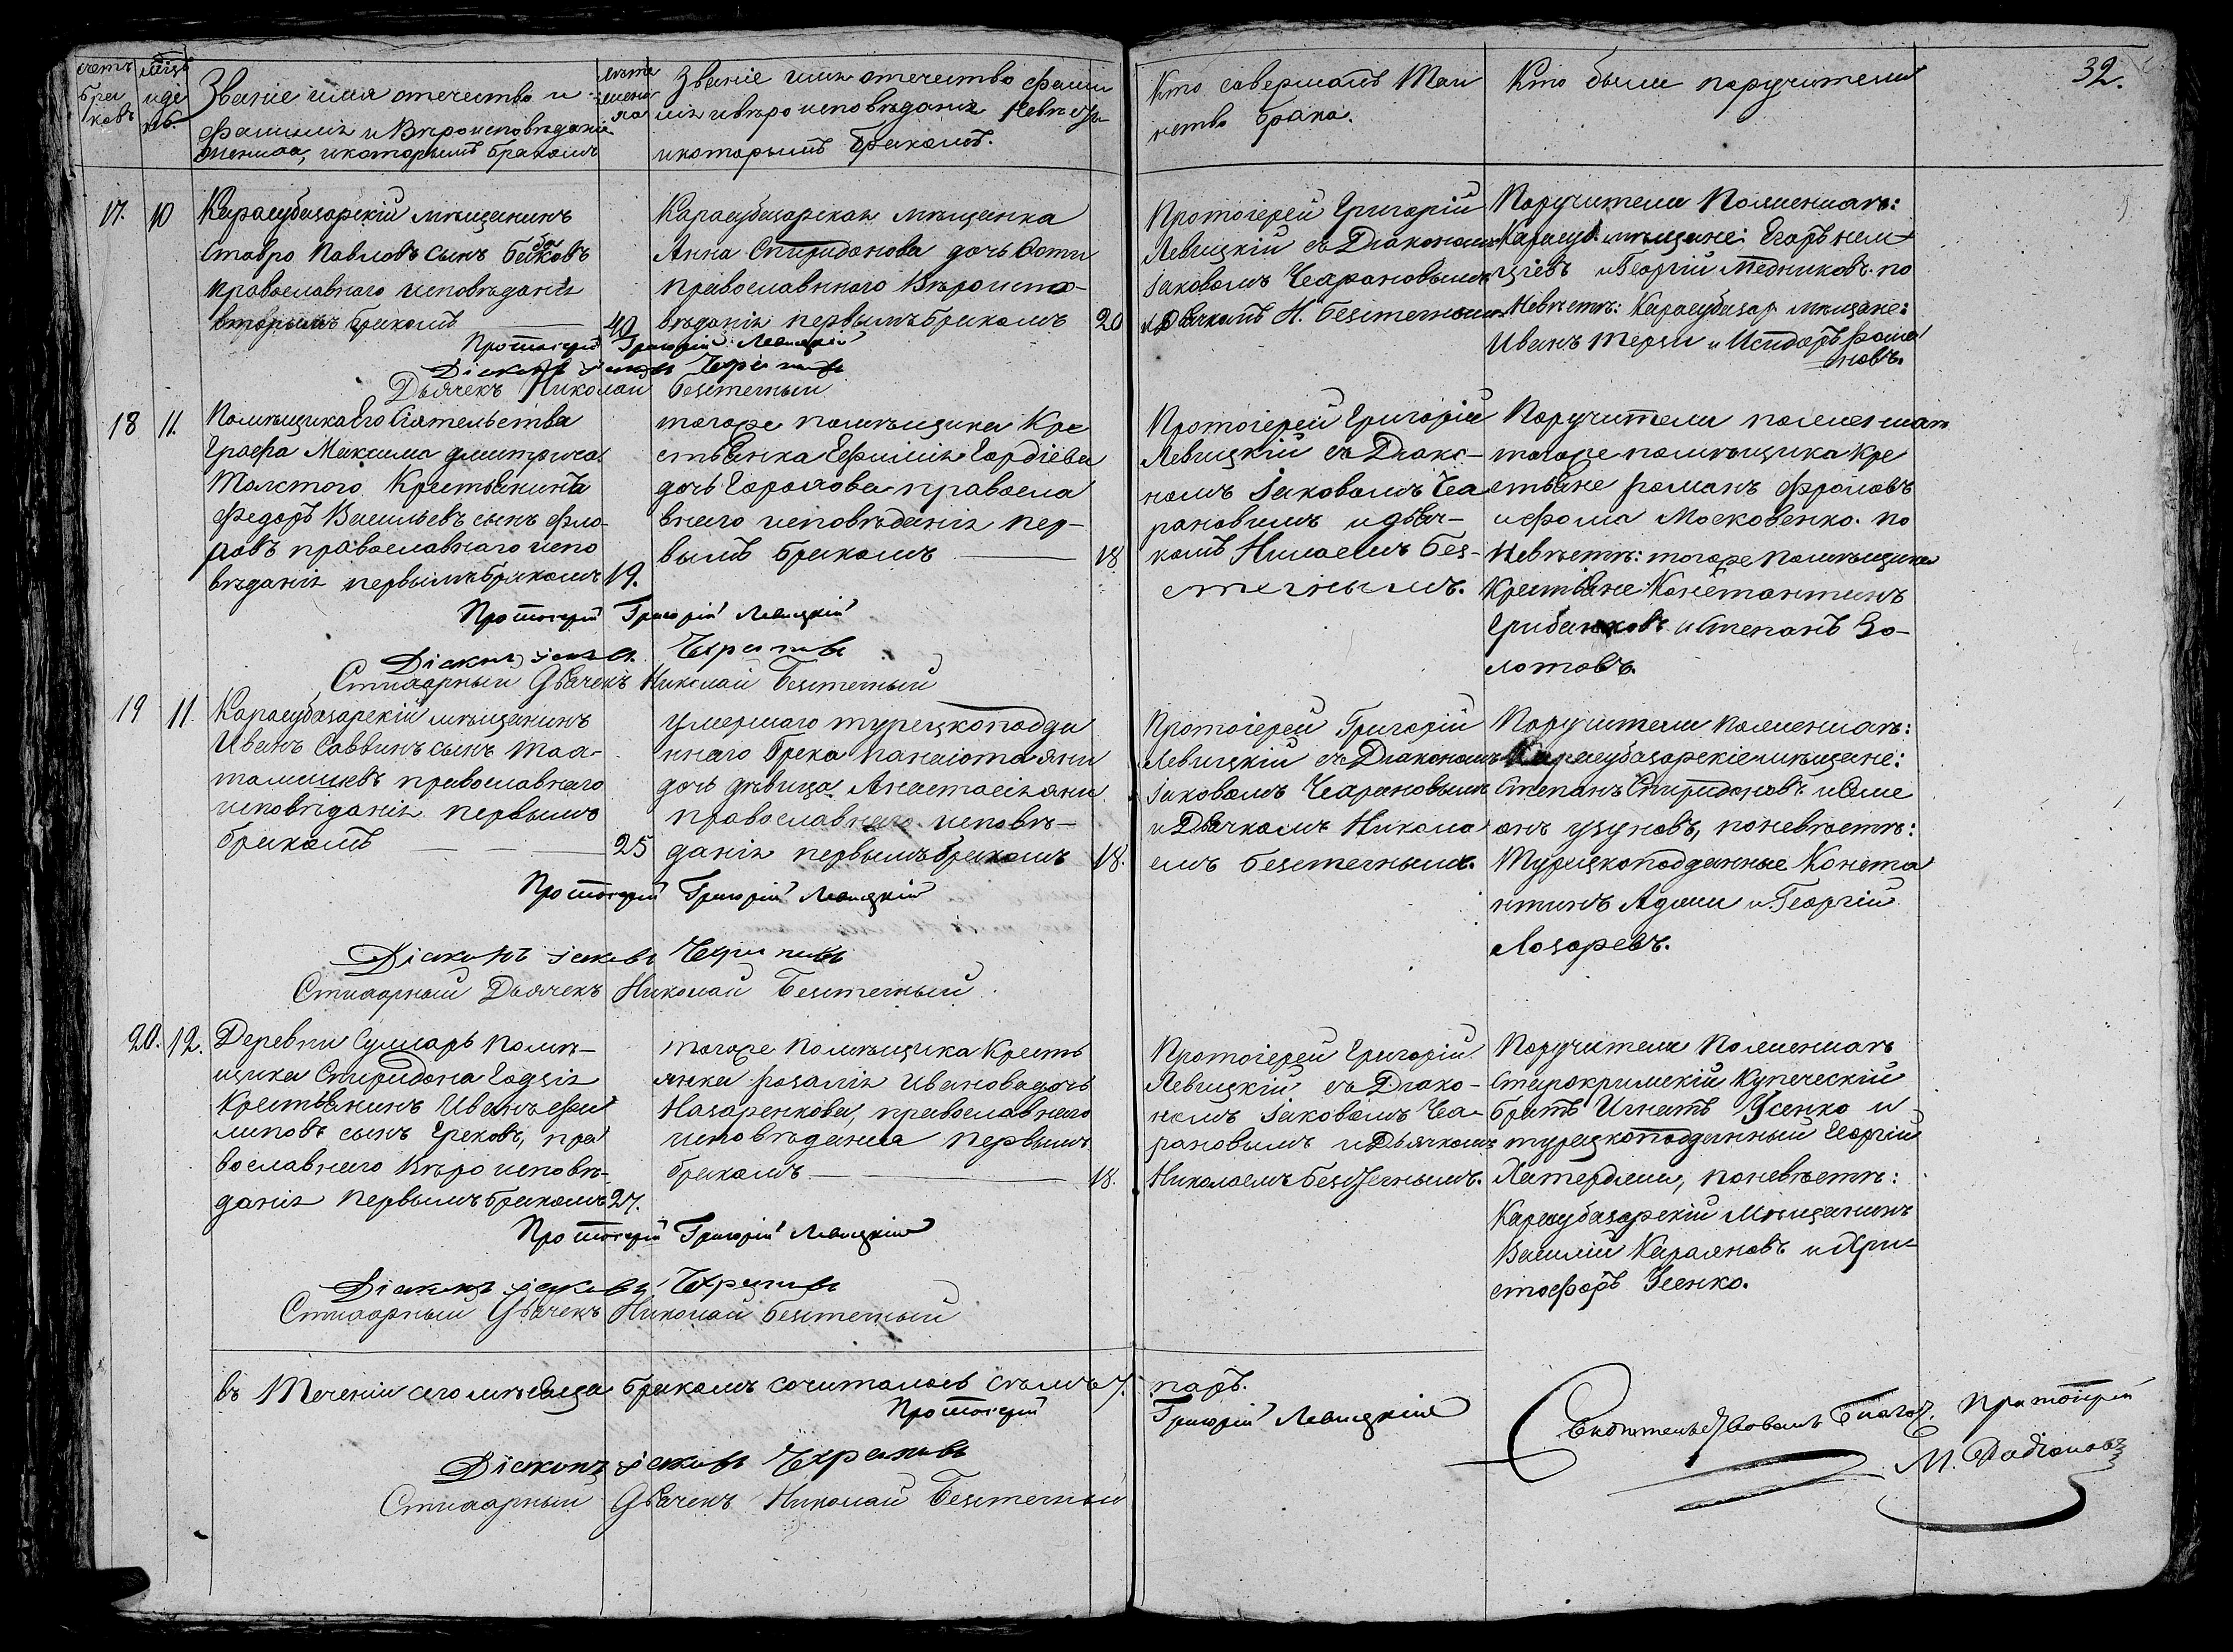 счетъ бра ковъ
мѣцъ и де нь.
Званіе имя отечество и
фамилія и Вѣроисповѣданіе
жениха, и которымъ бракомъ
лѣта жени ха
Званіе имя отечество фами
лія и вѣроисповѣданіе Невѣсты
и которымъ бракомъ.
Кто совершалъ Таи
нство брака.
Кто были поручители
32.
17. 10
Карасубазарскій мѣщанинъ
Ставро Павловъ сынъ
православнаго исповѣданія
вторымъ бракомъ 40
Карасубазарская мѣщанка
Анна Спиридонова дочь Фоти
православннаго Вѣроиспо-
вѣданія первымъ бракомъ 20
Протоіерей Григорій
Левицкій съ Діакономъ
Іаковомъ Чеарановымъ
и Дьячкомъ Н. Безтечнымъ
Поручители По женихѣ:
Карасуб. мѣщане: Егоръ
и Георгій Медниковъ. по
Невѣстѣ: Карасубазар мѣщане:
Иванъ Терзи и Исидоръ Фоме
новъ.
Протоіерей Григорій Левицкій
Діаконъ Іаковъ
Дьячекъ Николай Безтечный
18 11.
Помѣщика Его Сіятельства
Графа Максима Дмитрича
Толстого Крестьянинъ
Федоръ Васильевъ сынъ Фло-
ровъ православнаго испо
вѣданія первымъ бракомъ 19.
тогоже помѣщика Кре
стьянка Ефимія Гордіева
дочь Горохова правосла
внаго исповѣданія пер-
вымъ бракомъ 18
Протоіерей Григорій
Левицкій съ Діако-
номъ Іаковомъ Чеа
рановымъ и дьяч-
комъ Николаемъ Без-
течнымъ.
Поручители по женихѣ
тогоже помѣщика кре
стьяне Романъ Фроловъ
и Фома Московенко. по
Невѣстѣ: тогоже помѣщика
Крестьяне Константинъ
и Степанъ Зо-
лотовъ.
Протоіерей Григорій Левицкій
Діаконъ Іаковъ
Стихарный Дьячекъ Николай Безтечный
19 11.
Карасубазарскій мѣщанинъ
Иванъ Саввинъ сынъ
православнаго
исповѣданія первымъ
бракомъ 25
умершаго турецкоподда
ннаго Грека Панаіота Яни
дочь дѣвица Анастасія Яни
православнаго исповѣ-
данія первымъ бракомъ 18.
Протоіерей Григорій
Левицкій съ Діакономъ
Іаковомъ Чеарановымъ
и Дьячкомъ Никола
емъ Безтечнымъ.
Поручители По женихѣ:
Карасубазарскіе мѣщане:
Степанъ Спиридоновъ и Симе
онъ Узуновъ, по невѣстѣ:
Турецкоподданные Конста
нтинъ Адами и Георгій
Лозаревъ.
Протоіерей Григорій Левицкій
Діаконъ Іаковъ
Стихарный Дьячекъ Николай Безтечный
20. 12.
Деревни Сулларъ Помѣ-
щика Спиридона
Крестьянинъ Иванъ Фи
липовъ сынъ Грековъ, пра
вославнаго Вѣроисповѣ-
данія первымъ бракомъ 27.
тогоже Помѣщика Кресть
янка Розалія Иванова дочь
Назаренкова, православнаго
исповѣданія первымъ
бракомъ 18.
Протоіерей Григорій
Левицкій съ Діако-
номъ Іаковомъ Чеа-
рановымъ и Дьячкомъ
Николаемъ Безтечнымъ.
Поручители По женихѣ
Старокримскій Купеческій
братъ Игнатъ Усенко и
турецкоподданный Георгій
по невѣстѣ:
Карасубазарскій Мѣщанинъ
Василій Караяновъ и Хри
стофоръ Усенко.
Протоіерей Григорій Левицкій
Діаконъ Іаковъ
Стихарный Дьячекъ Николай Безтечный
въ Теченіи сего мѣсяца бракомъ сочиталось 7. паръ.
Протоіерей Григорій Левицкій
Діаконъ Іаковъ
Стихарный Дьячекъ Николай Безтечный
Свидѣтельствовалъ Благоч. Протоіерей
М. Родіоновъ